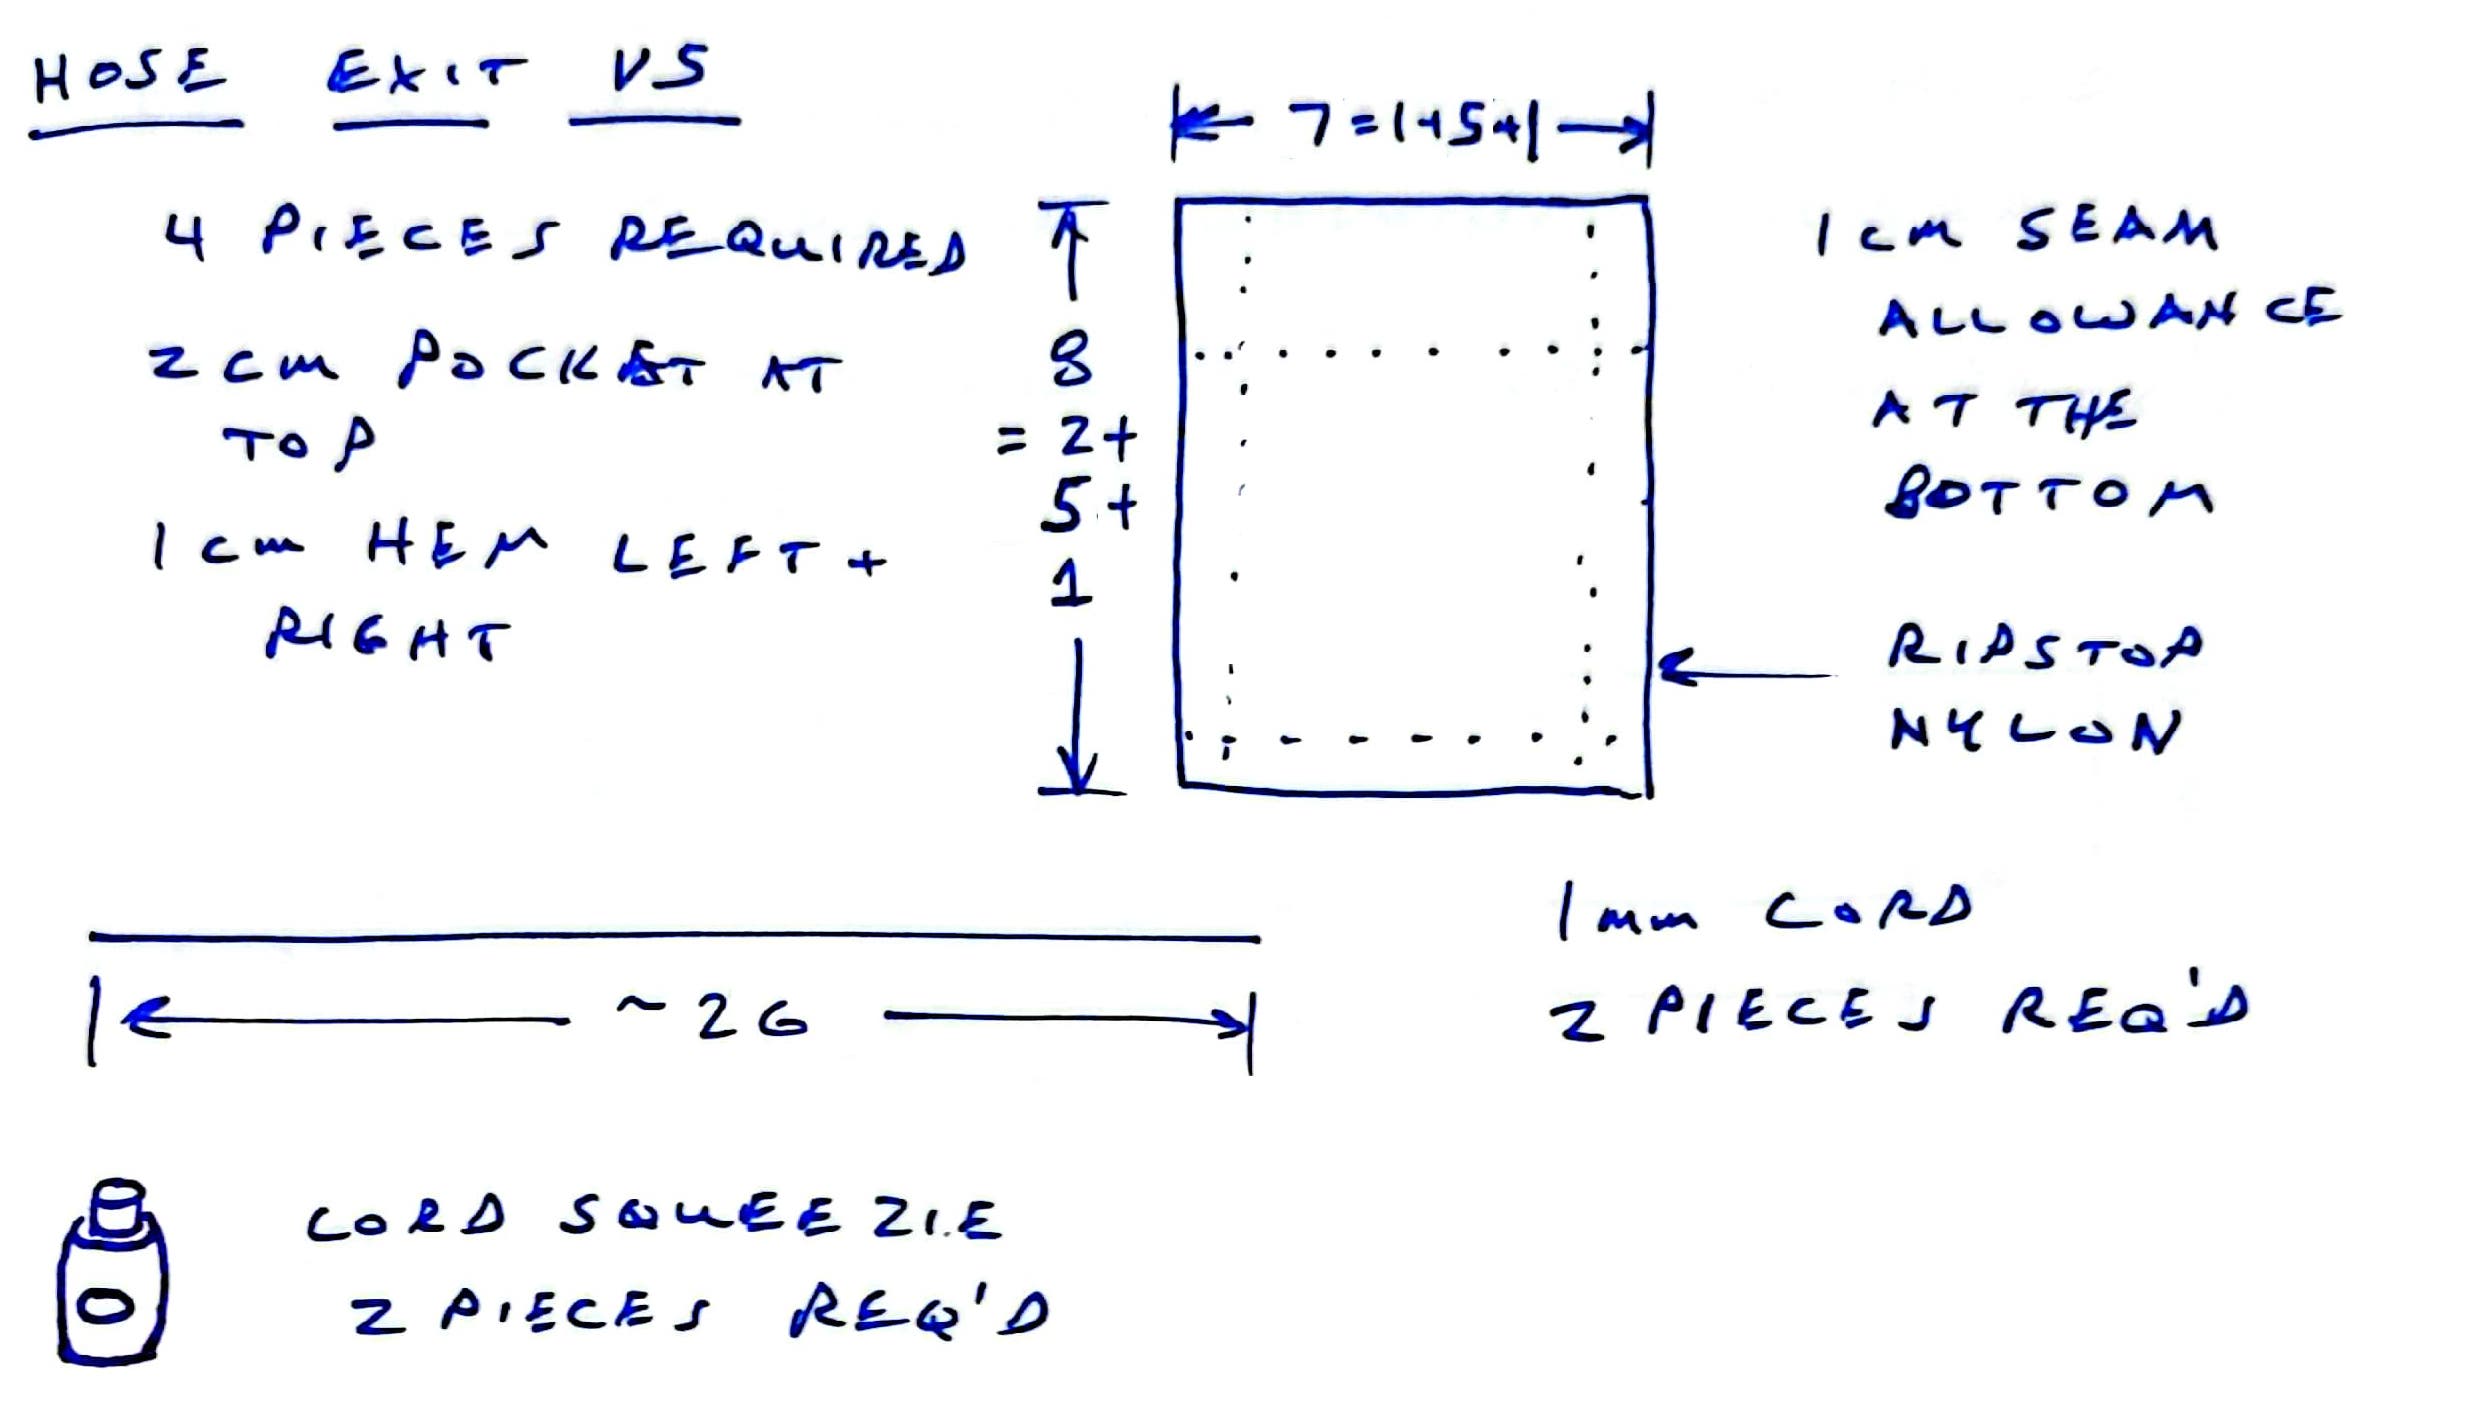 HOSE EXIT V5
7=1+5+1
4 PIECES REQUIRED
2 cm POCKET AT
TOP
1 cm HEM LEFT +
RIGHT
8
= 2+
5+
1
1 cm SEAM
ALLOWANCE
AT THE
BOTTOM
RIPSTOP
NYLON
1 mm CORD
2 PIECES REQ'D
~ 26
CORD SQUEEZIE
2 PIECES REQ'D